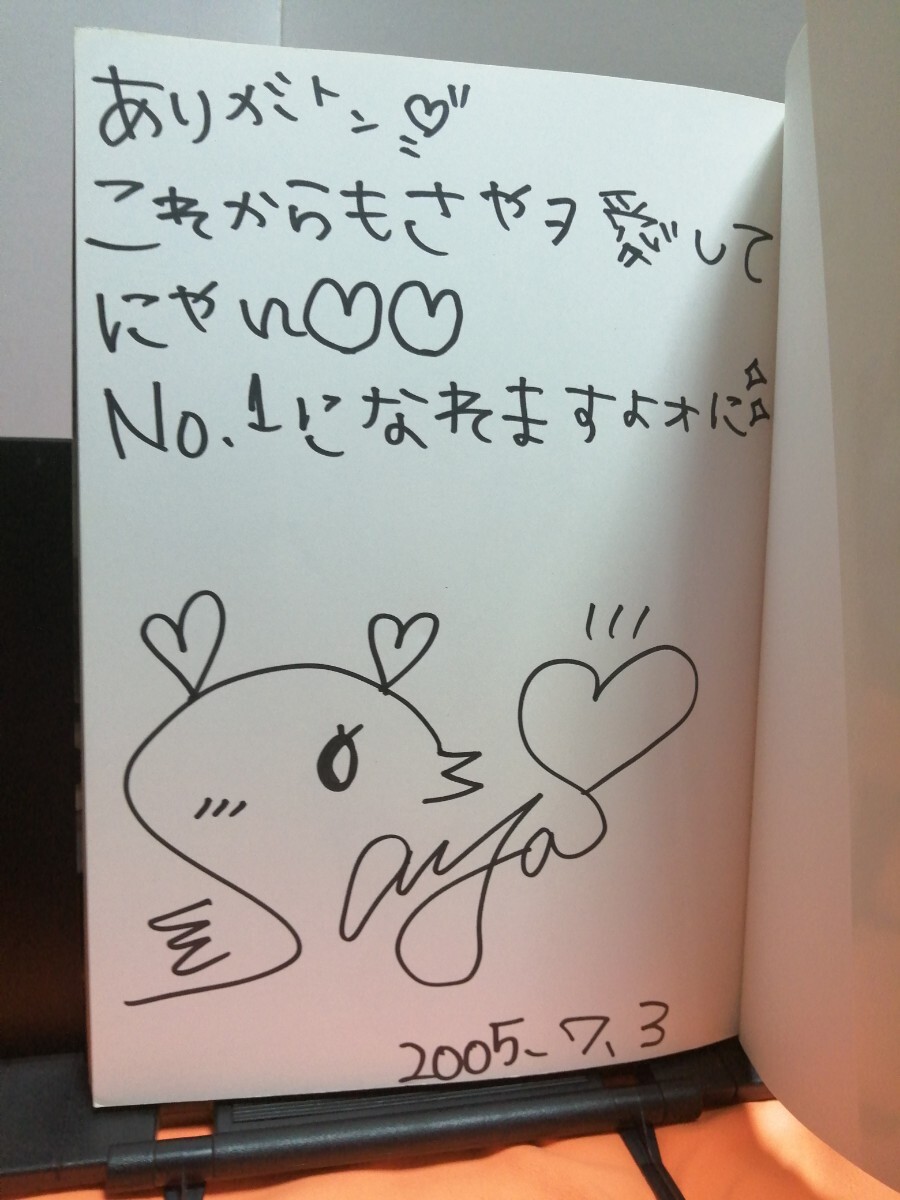 ありがトン♡
これからもさやヲ愛して
にゃん♡♡
No.1になれますよォに
Saya
2005.7.3